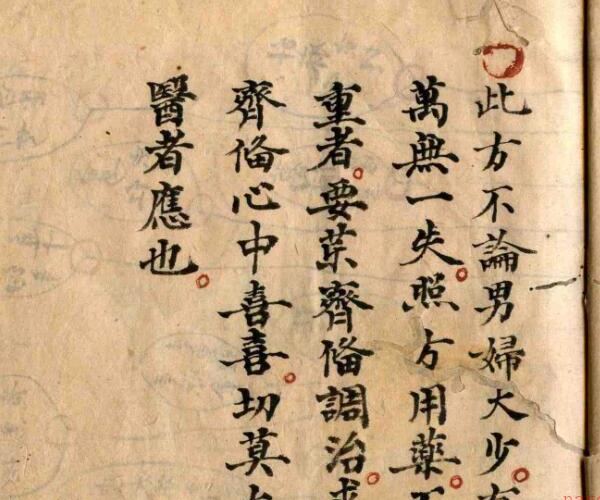 此方不論男婦大少。
萬無一失。照方用藥。
重者。要茶齊俻調治。
齊俻心中喜喜。切莫
醫者應也。